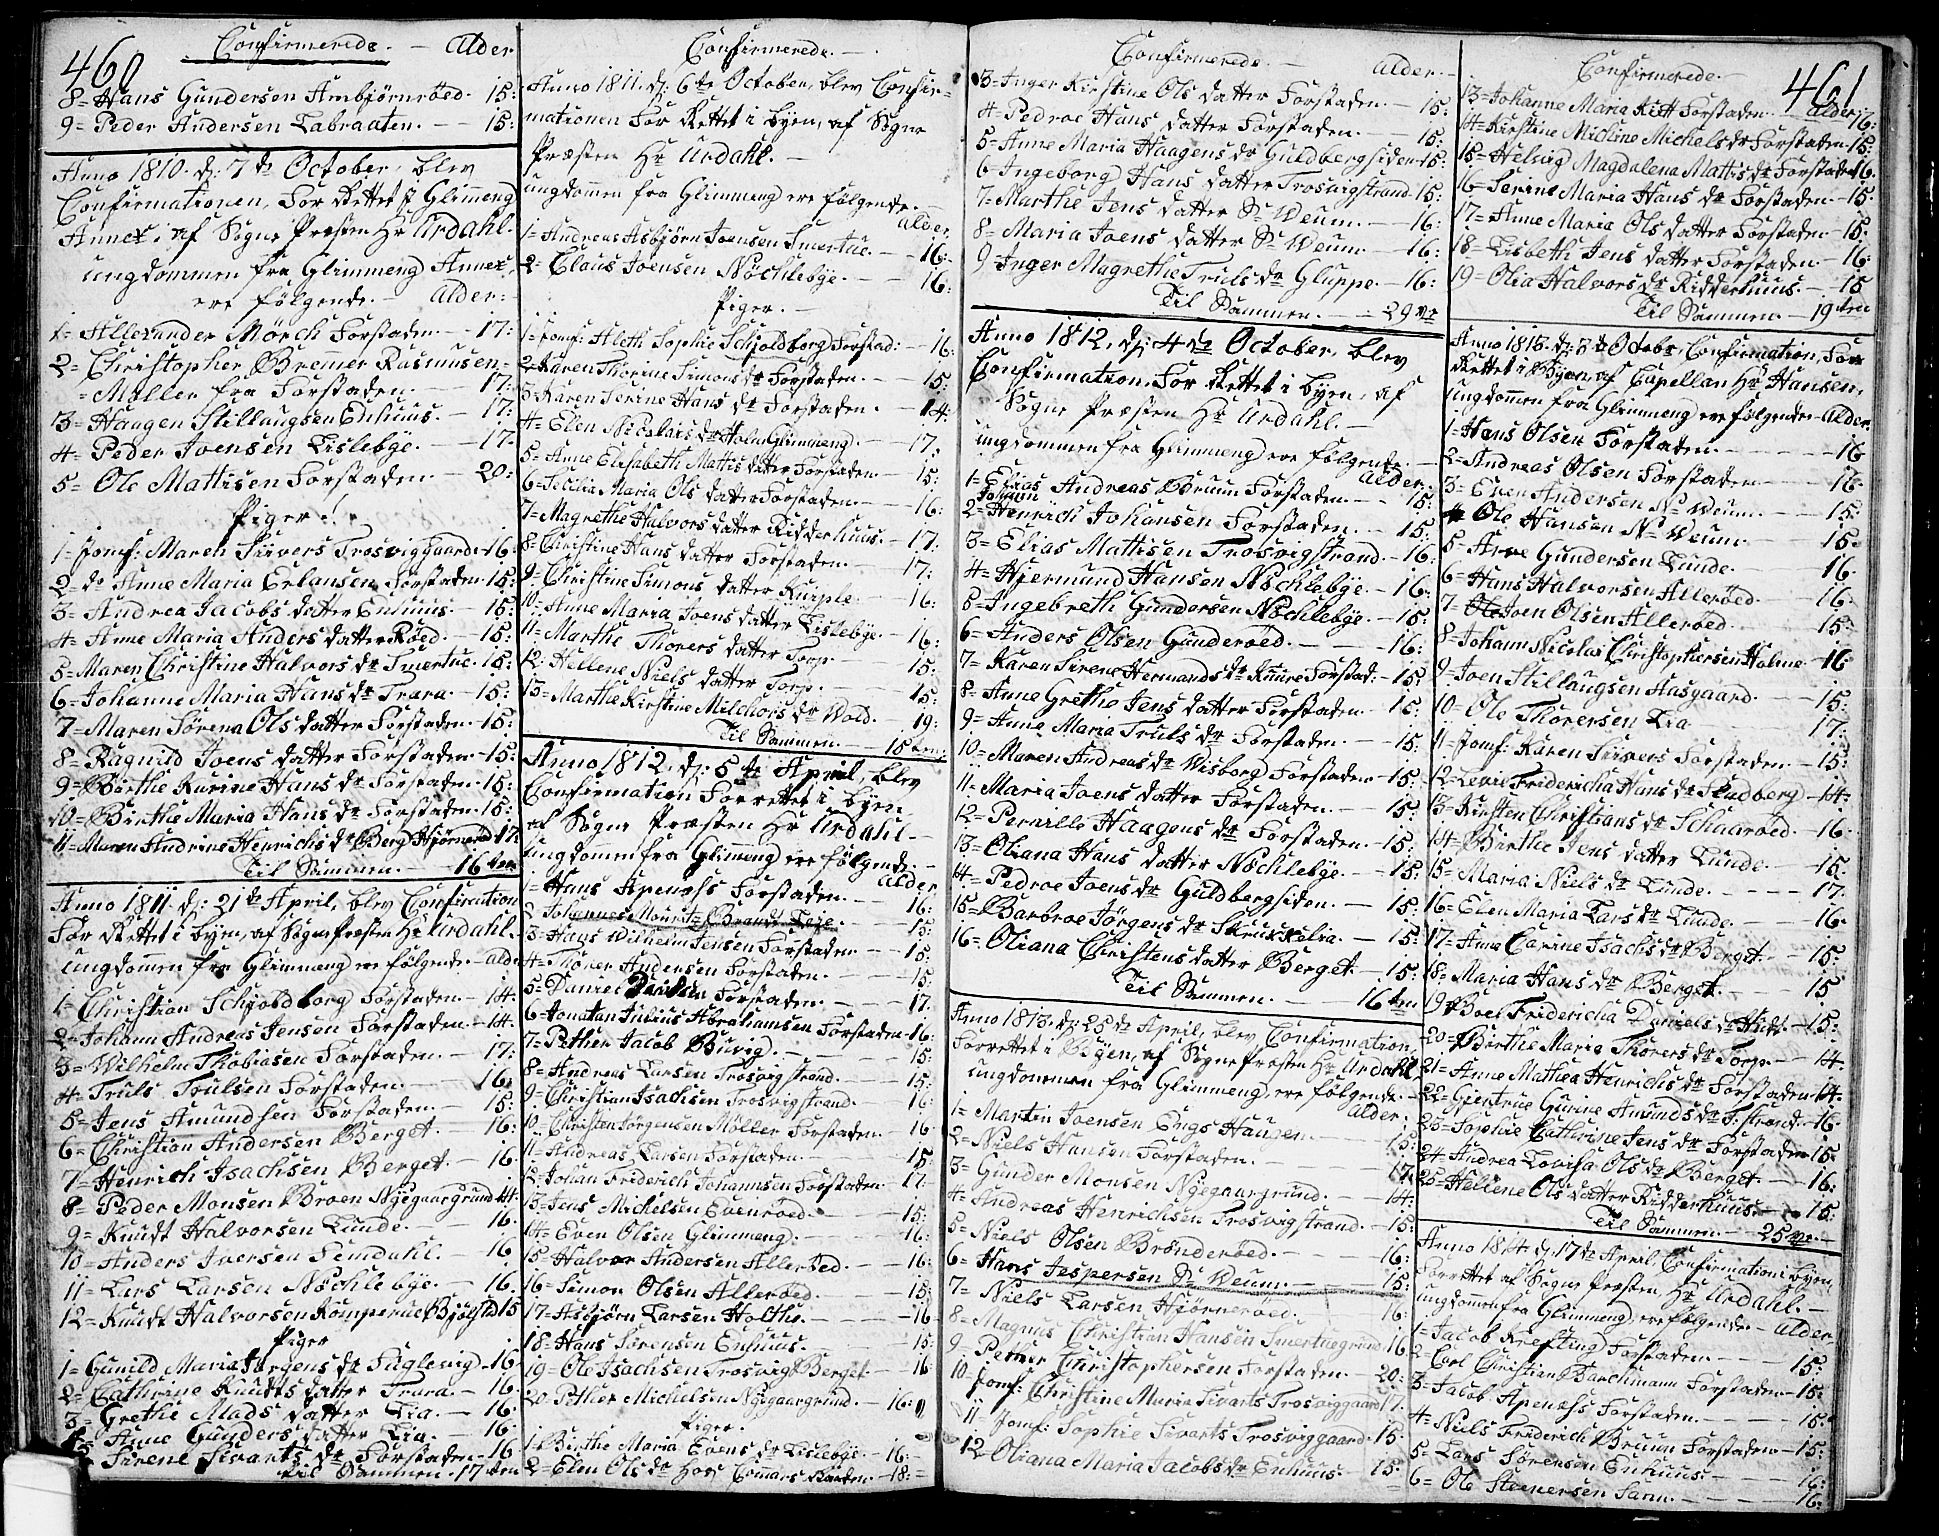 460
Confirmerede. — Alder
8 = Hans Gundersen Ambjörnröed. 15:
9 = Peder Andersen Labraaten. — 15:
Anno 1810. d: 7de October, blev
Confirmationen, For Rettet i Glimmeng
Annex, af Sogne Præsten Hr Urdahl.
Ungdommen fra Glimmeng Annex,
ere følgende. — Alder:
1 = Allexander Mörch Forstaden. — 17:
2 = Christopher Bremer Rasmusen =
= Møller fra Forstaden. — 17:
3 = Haagen Stillaugsen Enhuus. — 17:
4 = Peder Joensen Lislebye. — 17.
5 = Ole Mattisen Forstaden. — 20:
Piger.
1 = Jomf: Maren Sivers Trosviggaard. 16.
2 = do Anne Maria Erlansen Forstaden. 15:
3 = Andrea Jacobs datter Enhuus. — 15:
4 = Anne Maria Anders datter Röed. — 15:
5 = Maren Christine Halvors dr Smertue. 15:
6 = Johanne Maria Hans dr Trara. — 15:
7 = Maren Sörena Ols datter Forstaden. 15:
8 = Ragnild Joens datter Forstaden. — 15:
9 = Birthe Karine Hans dr Forstaden. 15:
10 = Birthe Maria Hans dr Forstaden. 15:
11 = Maren Andrine Henrichs dr Berg Hjörneröd 17
Til Sammen. — 16 ten
Anno 1811. d: 21de April, blev Confirmation
For Rettet i Byen, af Sogne Præsten Hr Urdahl.
Ungdommen fra Glimmeng ere følgende — Alder
1 = Christian Schjoldborg Forstaden. — 14.
2 = Johann Andreas Jensen Forstaden. — 14.
3 = Wilhelm Thobiasen Forstaden. — 17:
4 = Truls Trulsen Forstaden. — 16.
5 = Jens Amundsen Forstaden. — 15:
6 = Christian Andersen Berget. — 16:
7 = Henrich Isachsen Berget. — 16.
8 = Peder Monsen Broen Nyegaargrund 14.
9 = Knudt Halvorsen Lunde. — 16.
10 = Anders Iversen Lundahl. — 16.
11 = Lars Larsen Nöchlebye. — 16.
12 = Knudt Halvorsen 15
Piger
1 = Gunild Maria Jörgens dr Fuglevig. 16.
2 = Cathrine Knudts datter Trara. — 16.
3 = Grethe Mads datter Lia. — 16.
4 = Anne Gunders datter Lia. — 16.
5 = Sirene Sivarts dr Forstaden. — 16.
til Sammen. 17 ten
Confirmerede. —
Anno 1811. d: 6te October, blev Confir-
mationen For Rettet i Byen, af Sogne
Præsten Hr Urdahl. —
Ungdommen fra Glimmeng ere følgende. —
Alder
1 = Andreas Asbjörn Joensen Smertue. — 16:
2 = Claus Joensen Nöchlebye. — 16:
Piger. —
1 = Jomf: Aleth Sophie Schjoldborg Forstad: — 16:
2 = Karen Thorine Simons dr Forstaden. — 15:
3 = Karen Serine Hans dr Forstaden. — 14:
4 = Elen Nicolais dr Holm Glimmeng. — 17:
5 = Anne Elisabeth Mattis datter Forstaden. 15:
6 = Secilia Maria Ols datter Forstaden. — 16:
7 = Magrethe Halvors datter Ridderhuus. — 17:
8 = Christine Hans datter Forstaden. — 17:
9 = Christine Simons datter Kurple. — 16:
10: Anne Maria Joens datter Lislebye. — 16:
11 = Marthe Thorers datter Torp. — 15:
12: Hellene Niels datter Torp. — 15:
13 = Marthe Kirstine Melchiors dr Wold. — 19:
Til Sammen. — 15 ten:
Anno 1812. d: 5te April, blev
Confirmation Forrettet i Byen
af Sogne Præsten Hr Urdahl. —
Ungdommen fra Glimmeng ere følgende. —
Alder
1 = Hans Apenæss Forstaden. — 16:
2 Johannes Mouritz Brandt Leje. 15:
3 = Hans Wilhelm Jensen Forstaden. — 15:
4 = Thorer Andersen Forstaden. — 15:
5 = Daniel Forstaden. — 17.
6 = Jonatan Julius Abrahamsen Forstaden. 16:
7 = Pether Jacob Buvig. — 15:
8 = Andreas Larsen Trosvigstrand. — 15:
9 = Christian Isachsen Trosvigstrand. — 16:
10: Christen Jörgensen Möller Forstaden. 16
11 = Andreas Larsen Forstaden. — 15:
12 = Johan Friderich Johannsen Forstaden. 17:
13 = Jens Michelsen Evenröed. — 15:
14 = Even Olsen Glimmeng. — 16:
15 Halvor Andersen Alleröed. — 16:
16 = Simon Olsen Alleröed. — 15:
17 = Asbjörn Larsen Holthe. — 16
18 = Hans Sörensen Enhuus. — 15:
19 = Ole Isachsen Trosvig Berget. 16
20 = Pether Michelsen Nyegaargrund. — 16:
Piger.
1 = Birthe Maria Evens dr Lislebye. — 16:
2 = Elen Ols dr hos — 18: =
Confirmerede. — Alder. —
3 = Inger Kirstine Ols datter Forstaden. — 15:
4 = Pedroe Hans datter Forstaden. — 15:
5 = Anne Maria Haagens dr Guldbergsiden 15:
6 = Ingeborg Hans datter Trosvigstrand. 15:
7 = Marthe Jens datter Sr Weum. — 16:
8 = Maria Joens datter Sr Weum. — 16:
9 = Inger Magrethe Truls dr Gluppe. — 16:
Til Sammen. — 29 ve
Anno 1812, d: 4de October, blev
Confirmation For Rettet i Byen, af
Sogne Præsten Hr Urdahl. —
Ungdommen fra Glimmeng ere følgende. —
Alder
1 = Elias Andreas Bruun Forstaden. — 15:
2 = Johann Henrich Johansen Forstaden. — 15:
3 = Elias Mattisen Trosvigstrand. 16:
4 = Hjermund Hansen Nöchlebye. — 16:
5 = Ingebreth Gundersen Nöchlebye. — 15:
6 = Anders Olsen Gunderöed. — 16:
7 = Karen Sirene Hermands dr Knure Forstad: — 15:
8 = Anne Grethe Jens datter Forstaden. — 15:
9 = Anne Maria Truls dr Forstaden. — 15:
10 = Maren Andreas dr Wisborg Forstaden — 15:
11 = Maria Joens datter Forstaden. — 15:
12 = Pernille Haagens dr Forstaden. — 15:
13 = Oliana Hans datter Nöchlebye. — 15:
14. = Pedroe Joens dr Guldbergsiden. — 15:
15 = Barbroe Jörgens dr Skrukkelia. — 15:
16 = Oliana Christens datter Berget. — 15:
Til Sammen. — 16 ten
Anno 1813. d: 25de April, blev Confirmation,
Forrettet i Byen, af Sogne Præsten Hr Urdahl,
Ungdommen fra Glimmeng, ere følgende. —
Alder:
1 = Martin Joensen Engs Haugen. — 15:
2 = Niels Hansen Forstaden. — 17.
3 = Gunder Monsen Nyegaargrund. — 14:
4 = Andreas Henrichsen Trosvigstrand. — 15:
5 = Niels Olsen Brönderöed. — 16:
6 = Hans Jespersen Sr Weum. — 15:
7 = Niels Larsen Hjörneröed. — 16:
8 = Magnus Christian Hansen Smertuegrund 16
9 = Pether Christophersen Forstaden. — 20:
10 = Jomf: Christine Maria Sivarts Trosviggaard 17.
11 = Jomf: Sophie Sivarts Trosviggaard. 15.
12 = Oliana Maria Jacobs dr Enhuus. — 15:
461
Confirmerede. — Alder
13 = Johanne Maria Kitt Forstaden. — 16:
14 = Kirstine Micline Michels dr Forstaden. 15:
15 = Helvig Magdalena Mattis dr Forstaden 16.
16 = Serine Maria Hans dr Forstaden. — 15.
17 = Anne Maria Ols datter Forstaden — 15.
18 = Lisbeth Jens datter Forstaden. — 16.
19 = Olia Halvors dr Ridderhuus. — 15
Til Sammen. — 19 ten
Anno 1813. d: 3de Octobr, Confirmation, For
Rettet i Byen, af Capellan Hr Hansen,
Ungdommen fra Glimmeng ere følgende — Alder
1 = Hans Olsen Forstaden. — 16
2 = Andreas Olsen Forstaden — 16
3 = Even Andersen Nr Weum. — 15:
4 Ole Hansen Nr Weum. — 15.
5 = Arne Gundersen Lunde. — 16.
6 = Hans Halvorsen Alleröed. — 16.
7 = Joen Olsen Alleröed. — 15:
8 = Johann Nicolas Christophersen Holme. 16
9 = Joen Stillaugsen Hasgaard. — 15:
10 = Ole Thorersen Lia — 17:
11 = Jomf: Karen Sivers Forstaden. — 15:
12 = Fridericha Hans dr — 14.
13 = Kirsten Christians dr Schaaröed. — 16:
14 = Birthe Jens datter Lunde. — 15.
15 = Maria Niels dr Lunde. — 17.
16 = Elen Maria Lars dr Lunde. — 16.
17 = Anne Carine Isachs dr Berget. — 15:
18 = Maria Hans dr Berget. — 15
19 = Boel Fridericha Daniels dr — 15:
20 = Birthe Maria Thorers dr Torp. — 14.
21 = Anne Mathea Henrichs dr Forstaden. 14.
22 = Gjertrue Gurine Amunds dr T: strand. 16.
23 = Sophie Cathrine Jens dr Forstaden 15
24 = Andrea Lovisa Ols dr Berget. — 16:
25 = Hellene Ols datter Ridderhuus. — 15:
Til Sammen. — 25 ve
Anno 1814. d: 17de April, Confirmation i Byen,
Forrettet af Sogne Præsten, Hr Urdahl. —
Ungdommen fra Glimmeng, ere følgende. — Alder
1 = Jacob Krefting Forstaden. — 15:
2 = Carl Christian Barchmann Forstaden — 15:
3 = Jacob Apenæss Forstaden. — 15:
4 = Niels Friderich Bruun Forstaden — 15:
5 = Lars Sörensen Enhuus. — 16:
6 = Ole Steenersen Sarm. — 16: